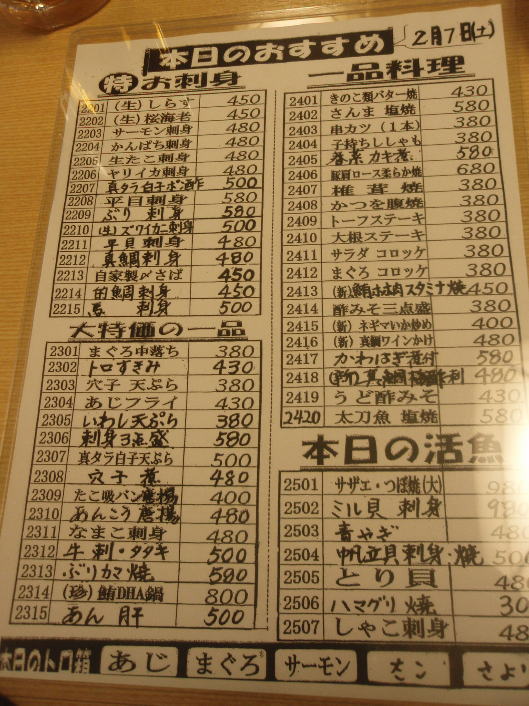 本日のおすすめ
2月7日(土)
特 お刺身
2201 (生)しらす 450
2202 (生)桜海老 450
2203 サーモン刺身 480
2204 かんぱち刺身 480
2205 生たこ刺身 480
2206 ヤリイカ刺身 480
2207 真タラ白子ポン酢 500
2208 平目刺身 580
2209 ぶり刺身 580
2210 (生)ズワイガニ刺身 500
2211 平貝刺身 480
2212 真鯛刺身 480
2213 自家製〆さば 450
2214 的鯛刺身 450
2215 刺身 500
大特価の一品
2301 まぐろ中落ち 380
2302 トロすきみ 430
2303 穴子天ぷら 380
2304 あじフライ 430
2305 いわし天ぷら 380
2306 刺身3点盛 580
2307 真タラ白子天ぷら 500
2308 穴子煮 480
2309 たこ吸バン唐揚 400
2310 あんこう唐揚 480
2311 なまこ刺身 480
2312 牛刺・タタキ 500
2313 ぶりカマ焼 580
2314 (珍)鮪DHA鍋 800
2315 あん肝 500
一品料理
2401 きのこ類バター焼 430
2402 さんま塩焼 580
2403 串カツ(1本) 380
2404 子持ちししゃも 380
2405 カキ煮 580
2406 豚肩ロース柔らか焼 680
2407 椎茸焼 380
2408 かつを腹焼 380
2409 トーフステーキ 380
2410 大根ステーキ 380
2411 サラダコロッケ 380
2412 まぐろコロッケ 380
2413 (新)鮪ホホ肉スタミナ焼 450
2414 酢みそ三点盛 380
2415 (新)ネギマいか炒め 400
2416 (新)真鯛ワインかけ 480
2417 かわはぎ煮付 580
2418 480
2419 うど酢みそ 430
2420 太刀魚塩焼 580
本日の活魚
2501 サザエ・つぼ焼(大)
2502 ミル貝刺身
2503 青やぎ 480
2504 帆立貝刺身・焼 500
2505 とり貝
2506 ハマグリ焼
2507 しゃこ刺身
本日のトロ箱 あじ まぐろ サーモン